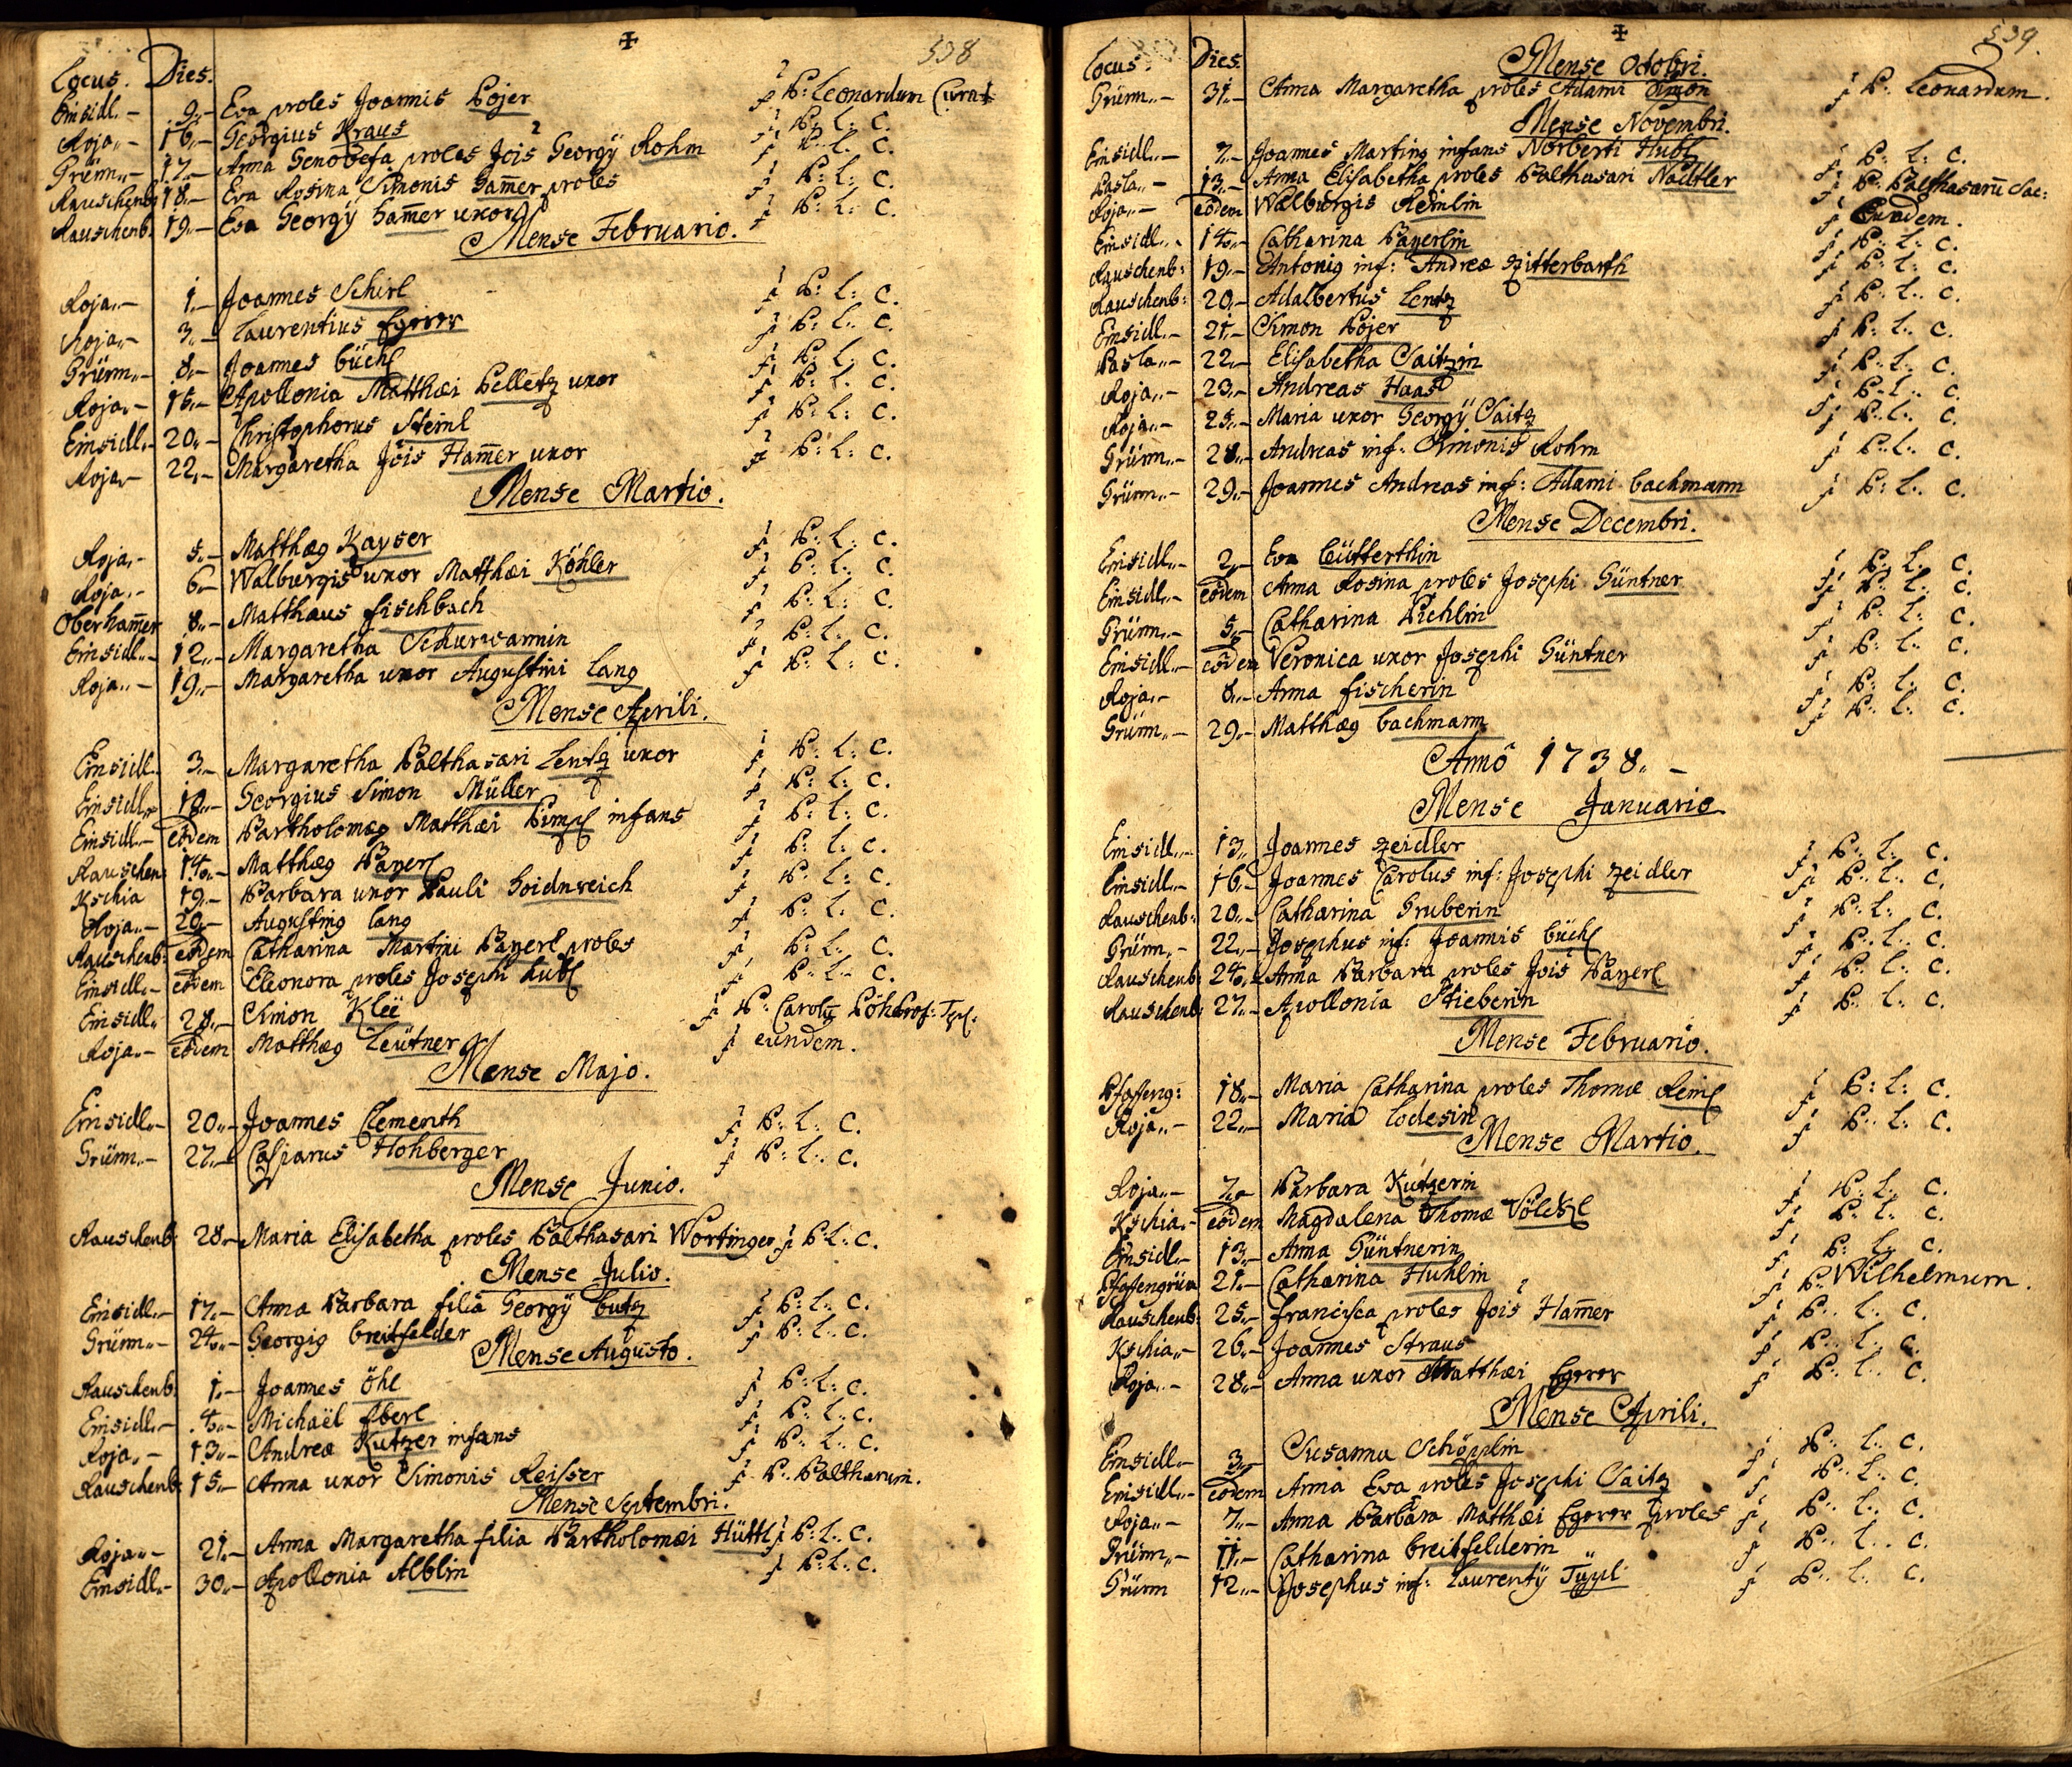 538
Locus. Dies.
Einsidl.- 9.- Eva proles Joannis Pojer P: Leonardum Curat
Roja.- 16.- Georgius Kraus P: L: C.
Grünn.- 17.- Anna Genovefa proles Jois Georgÿ Rohm P: L: C.
Rauschenb: 18.- Eva Rosina Simonis Hamer proles P: L: C.
Rauschenb: 19.- Eva Georgÿ Hamer uxor P: L: C.
Mense Februario.
Roja.- 1.- Joannes Schirl P: L: C.
Roja.- 3.- Laurentius Egerer P: L: C.
Grünn.- 8.- Joannes Büchl P: L: C.
Roja.- 15.- Apollonia Matthæi Pelletz uxor P: L: C.
Einsidl.- 20.- Christophorus Steinl P: L: C.
Roja.- 22.- Margaretha Jois Hamer uxor P: L: C.
Mense Martio.
Roja.- 5.- Matthæg Kayser P: L: C.
Roja.- 6.- Walburgis uxor Matthæi Köhler P: L: C.
Oberhamer 8.- Matthæus fischbach P: L: C.
Einsidl.- 12.- Margaretha Schurwannin P: L: C.
Roja.- 19.- Margaretha uxor Augustini Lang P: L: C.
Mense Aprili.
Einsidl.- 3.- Margaretha Balthasari Lentz uxor P: L: C.
Einsidl.- 12.- Georgius Simon Müller P: L: C.
Einsidl.- eodem Bartholomæg Matthæi Pimpl infans P: L: C.
Rauschen: 14.- Matthæg Bayerl P: L: C.
Kschia 19.- Barbara uxor Pauli Hoidnreich P: L: C.
Roja.- 20.- Augusting Lang P: L: C.
Rauschenb: eodem Catharina Martini Bayerl proles P: L: C.
Einsidl.- eodem Eleonora proles Josephi Hubl P: L: C.
Einsidl. 28.- Simon Klee P: Carolg Pöh Prof: Tepl.
Roja.- eodem Matthæg Leütner eundem.
Mense Majo.
Einsidl.- 20.- Joannes Clementh P: L: C.
Grünn.- 27.- Casparus Hohberger P: L: C.
Mense Junio.
Rauschenb: 28.- Maria Elisabetha proles Balthasari Wortinger P: L: C.
Mense Julio.
Einsidl.- 17.- Anna Barbara filia Georgÿ Butz P: L: C.
Grünn.- 24.- Georgig Breitfelder P: L: C.
Mense Augusto.
Rauschenb: 1.- Joannes Öhl P: L: C.
Einsidl.- 4.- Michaël Eberl P: L: C.
Roja.- 13.- Andreæ Kutzer infans P: L: C.
Rauschenb: 15.- Anna uxor Simonis Reisser P: Balthasarum.
Mense Septembri.
Roja.- 21.- Anna Margaretha filia Bartholomæi Hüttl P: L: C.
Einsidl.- 30.- Apollonia Alblin P: L: C.
539.
Locus. Dies.
Mense Octobri.
Grünn.- 31.- Anna Margaretha proles Adami Simon P: Leonardum.
Mense Novembri.
Einsidl.- 7.- Joannes Marting infans Norberti Hubl P: L: C.
Pasla.- 13.- Anna Elisabetha proles Balthasari Nadtler P: Balthasarū Sac:
Roja.- eodem Walburgis Reimlin Eundem.
Einsidl.- 14.- Catharina Bayerlin P: L: C.
Rauschenb: 19.- Antonig inf: Andreæ Zitterbarth P: L: C.
Rauschenb: 20.- Adalbertus Lentz P: L: C.
Einsidl.- 21.- Simon Pojer P: L: C.
Pasla.- 22.- Elisabetha Saitzin P: L: C.
Roja.- 23.- Andreas Haas P: L: C.
Roja.- 25.- Maria uxor Georgÿ Saitz P: L: C.
Grünn.- 28.- Andreas inf: Simonis Rohm P: L: C.
Grünn.- 29.- Joannes Andreas inf: Adami Bachmann P: L: C.
Mense Decembri.
Einsidl.- 2.- Eva Leütterthin P: L: C.
Einsidl.- eodem Anna Rosina proles Josephi Güntner P: L: C.
Grünn.- 5.- Catharina Pichlin P: L: C.
Einsidl.- eodem Veronica uxor Josephi Güntner P: L: C.
Roja.- 8.- Anna fischerin P: L: C.
Grünn.- 29.- Matthæg Bachmann P: L: C.
Anno 1738. -
Mense Januario
Einsidl.- 13. Joannes Zeidler P: L: C.
Einsidl.- 16.- Joannes Carolus inf: Josephi Zeidler P: L: C.
Rauschenb: 20.- Catharina Gruberin P: L: C.
Grünn.- 22.- Josephus inf: Joannis Büchl P: L: C.
Rauschenb: 24.- Anna Barbara proles Jois Bayerl P: L: C.
Rauschenb: 27.- Apollonia Stieberin P: L: C.
Mense Februario.
Pfaffeng: 18.- Maria Catharina proles Thomæ Reinl P: L: C.
Roja.- 22.- Maria Lodesin P: L: C.
Mense Martio.
Roja.- 7.- Barbara Kutzerin P: L: C.
Kschia.- eodem Magdalena Thomæ Völckl P: L: C.
Einsidl.- 13.- Anna Güntnerin P: L: C.
Pfaffengrün 21.- Catharina Huhlin P: Wilhelmum.
Rauschenb: 25.- francisca proles Jois Hamer P: L: C.
Kschia.- 26.- Joannes Straus P: L: C.
Roja.- 28.- Anna uxor Matthæi Egerer P: L: C.
Mense Aprili.
Einsidl.- 3.- Susanna Schöpplin P: L: C.
Einsidl.- eodem Anna Eva proles Josephi Saitz P: L: C.
Roja.- 7.- Anna Barbara Matthæi Egerer proles P: L: C.
Grünn.- 11.- Catharina Breitfelderin P: L: C.
Grünn 12.- Josephus inf: Laurentÿ Tüppl P: L: C.